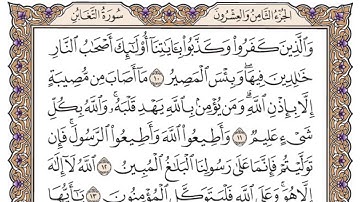 سُورَةُ التَّغَابُنِ الجُزْءُ الثَّامِنُ وَالعِشْرُونَ
وَالَّذِينَ كَفَرُوا۟ وَكَذَّبُوا۟ بِـَٔايَٰتِنَآ أُو۟لَٰٓئِكَ أَصْحَٰبُ النَّارِ
خَٰلِدِينَ فِيهَا ۖ وَبِئْسَ الْمَصِيرُ ١٠ مَآ أَصَابَ مِن مُّصِيبَةٍ
إِلَّا بِإِذْنِ اللَّهِ ۗ وَمَن يُؤْمِنۢ بِاللَّهِ يَهْدِ قَلْبَهُۥ ۚ وَاللَّهُ بِكُلِّ
شَىْءٍ عَلِيمٌ ١١ وَأَطِيعُوا۟ اللَّهَ وَأَطِيعُوا۟ الرَّسُولَ ۚ فَإِن
تَوَلَّيْتُمْ فَإِنَّمَا عَلَىٰ رَسُولِنَا الْبَلَٰغُ الْمُبِينُ ١٢ اللَّهُ لَآ إِلَٰهَ
إِلَّا هُوَ ۚ وَعَلَى اللَّهِ فَلْيَتَوَكَّلِ الْمُؤْمِنُونَ ١٣ يَٰٓأَيُّهَا